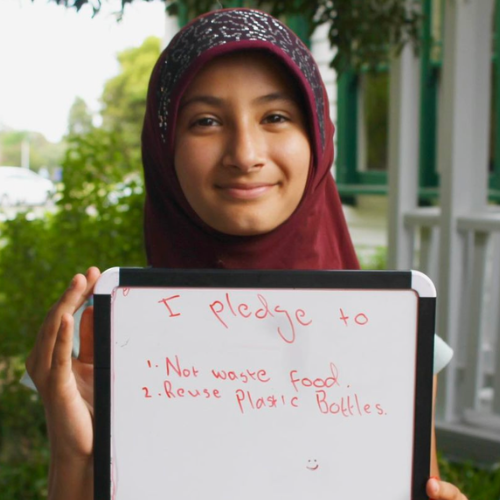 I pledge to
1. Not waste food.
2. Reuse Plastic Bottles.